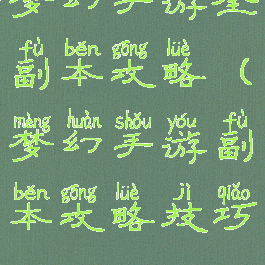 梦幻手游全
fù běn gōng lüè
副本攻略（
mèng huàn shǒu yóu fù
梦幻手游副
běn gōng lüè jì qiǎo
本攻略技巧